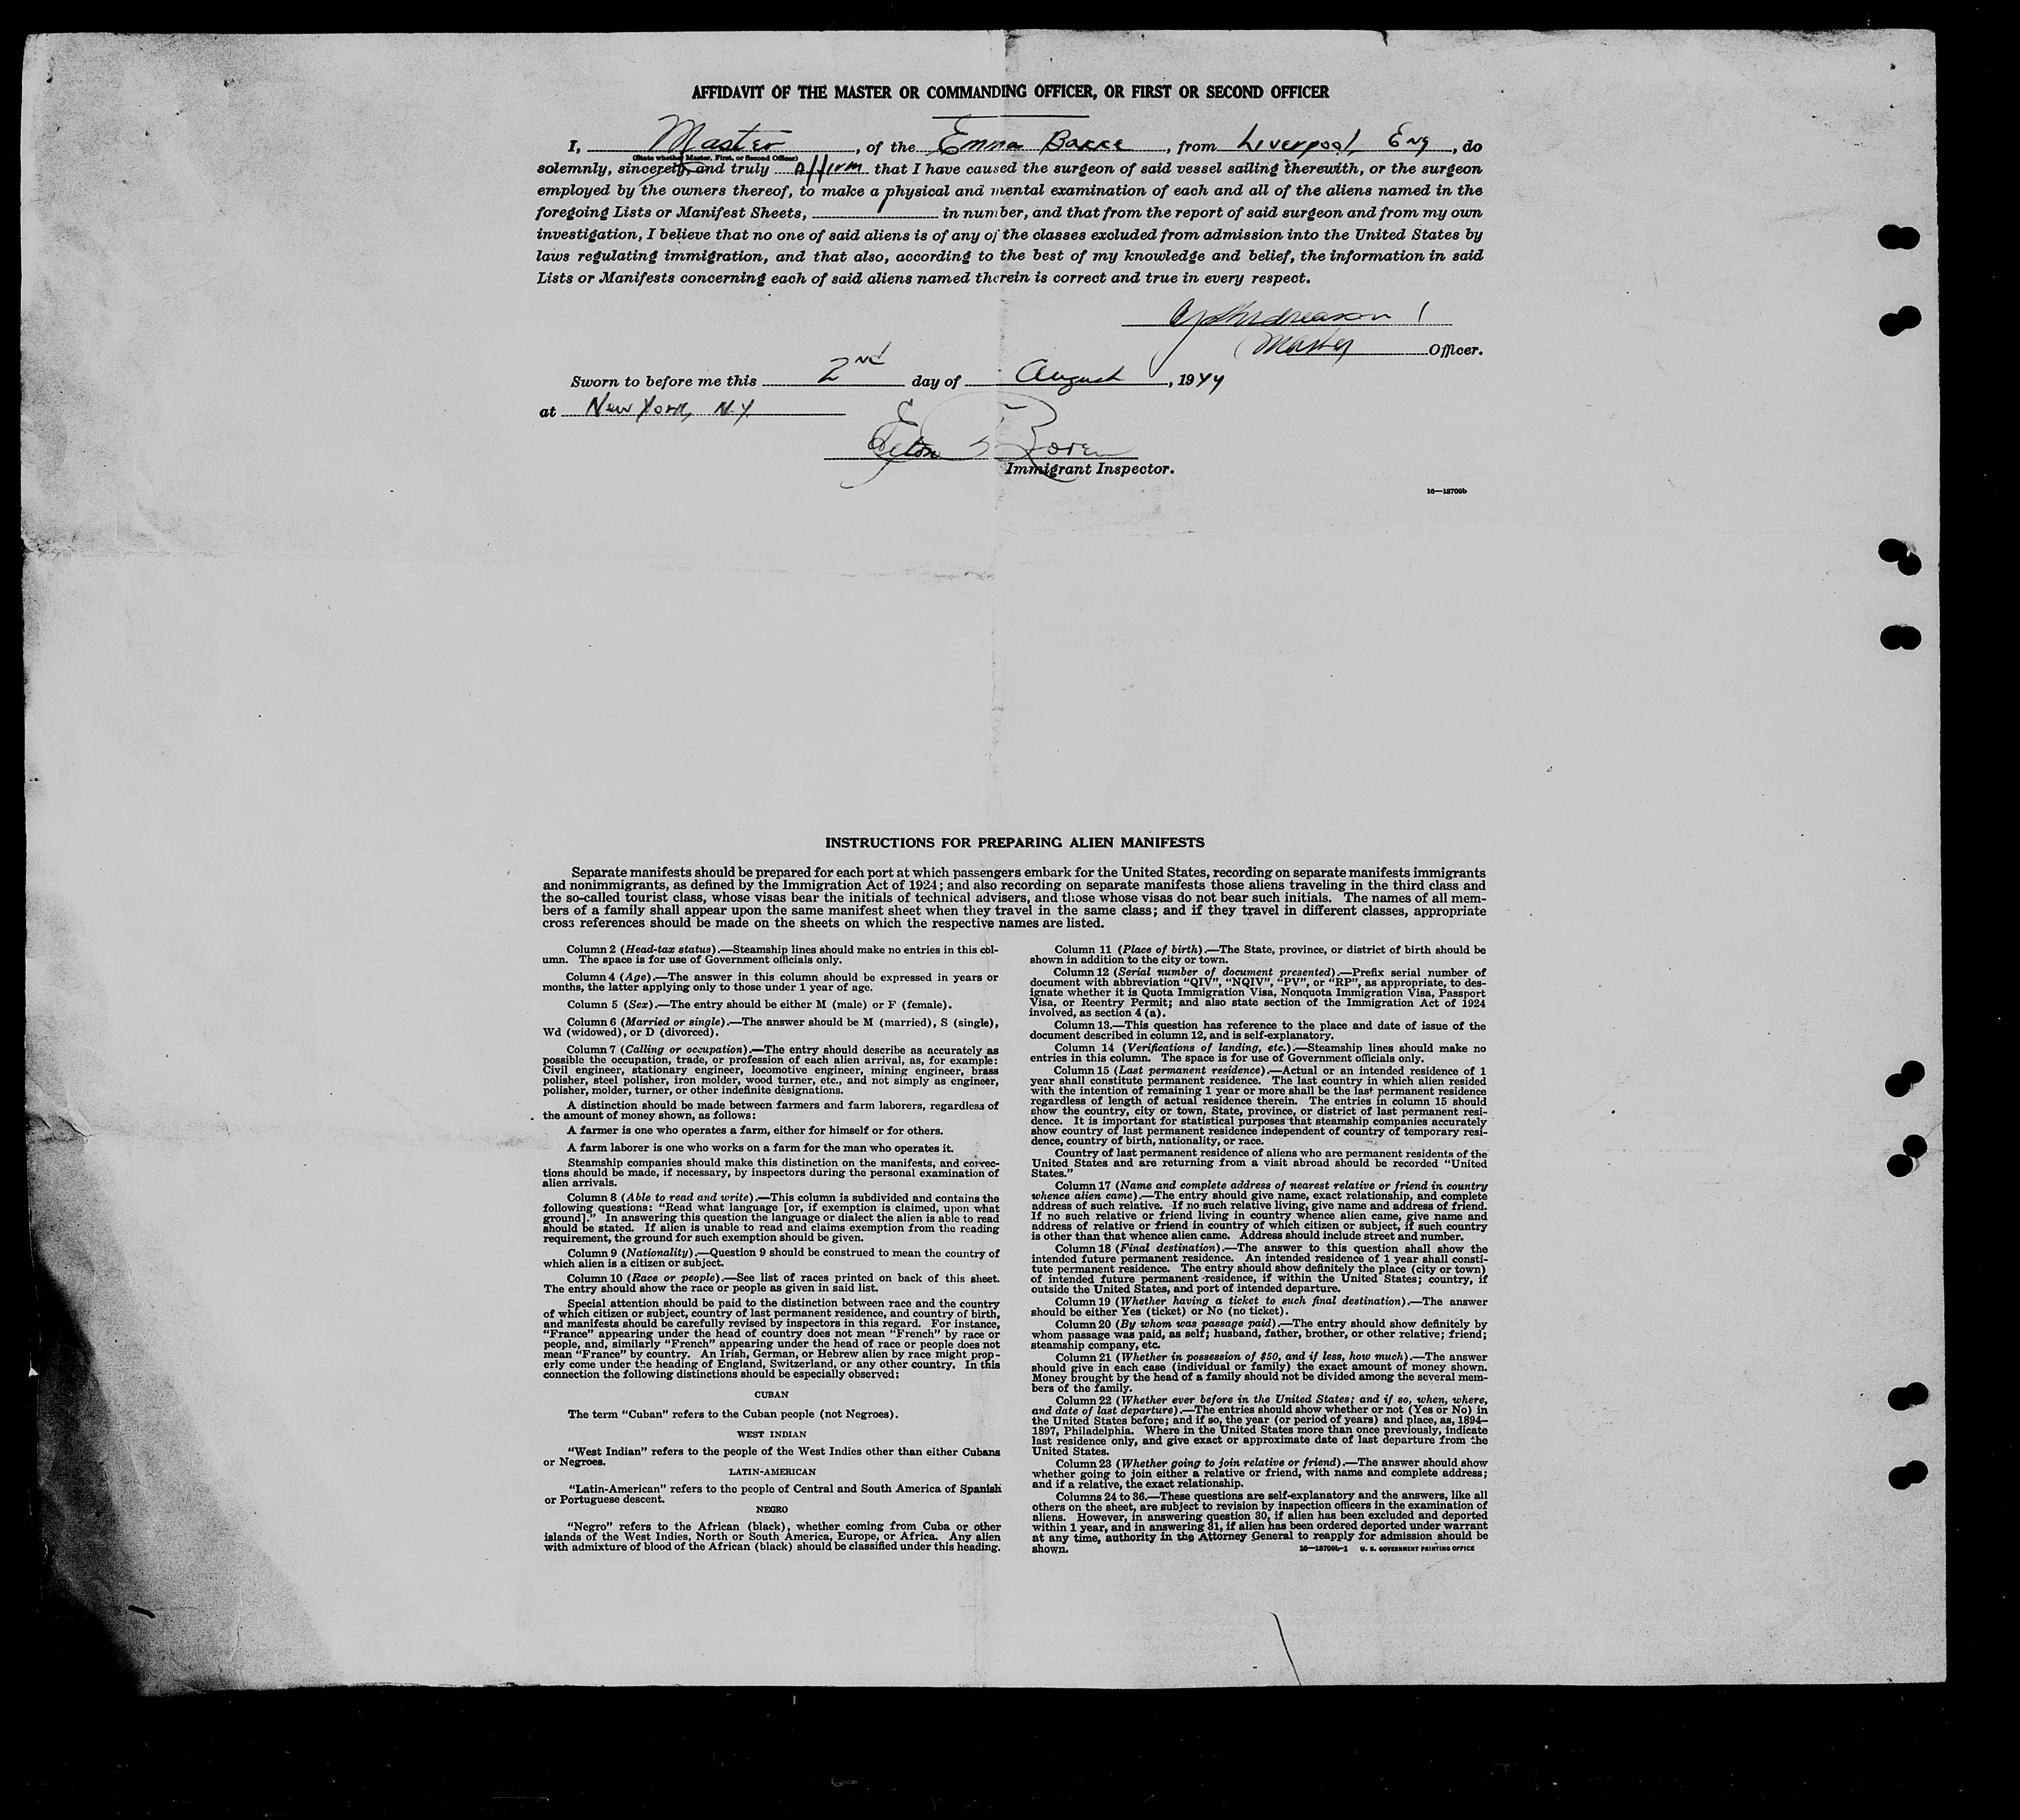 AFFIDAVIT OF THE MASTER OR COMMANDING OFFICER, OR FIRST OR SECOND OFFICER
I, Master, of the Emma Bakke, from Liverpool, Eng, do
(State whether Master, First, or Second Officer)
solemnly, sincerely, and truly Affirm that I have caused the surgeon of said vessel sailing therewith, or the surgeon
employed by the owners thereof, to make a physical and mental examination of each and all of the aliens named in the
foregoing Lists or Manifest Sheets, in number, and that from the report of said surgeon and from my own
investigation, I believe that no one of said aliens is of any of the classes excluded from admission into the United States by
laws regulating immigration, and that also, according to the best of my knowledge and belief, the information in said
Lists or Manifests concerning each of said aliens named therein is correct and true in every respect.
Master Officer.
Sworn to before me this 2nd day of August, 1944
at New York, N.Y.
Immigrant Inspector.
16—18709b
INSTRUCTIONS FOR PREPARING ALIEN MANIFESTS
Separate manifests should be prepared for each port at which passengers embark for the United States, recording on separate manifests immigrants
and nonimmigrants, as defined by the Immigration Act of 1924; and also recording on separate manifests those aliens traveling in the third class and
the so-called tourist class, whose visas bear the initials of technical advisers, and those whose visas do not bear such initials. The names of all mem-
bers of a family shall appear upon the same manifest sheet when they travel in the same class; and if they travel in different classes, appropriate
cross references should be made on the sheets on which the respective names are listed.
Column 2 (Head-tax status).—Steamship lines should make no entries in this col-
umn. The space is for use of Government officials only.
Column 4 (Age).—The answer in this column should be expressed in years or
months, the latter applying only to those under 1 year of age.
Column 5 (Sex).—The entry should be either M (male) or F (female).
Column 6 (Married or single).—The answer should be M (married), S (single),
Wd (widowed), or D (divorced).
Column 7 (Calling or occupation).—The entry should describe as accurately as
possible the occupation, trade, or profession of each alien arrival, as, for example:
Civil engineer, stationary engineer, locomotive engineer, mining engineer, brass
polisher, steel polisher, iron molder, wood turner, etc., and not simply as engineer,
polisher, molder, turner, or other indefinite designations.
A distinction should be made between farmers and farm laborers, regardless of
the amount of money shown, as follows:
A farmer is one who operates a farm, either for himself or for others.
A farm laborer is one who works on a farm for the man who operates it.
Steamship companies should make this distinction on the manifests, and correc-
tions should be made, if necessary, by inspectors during the personal examination of
alien arrivals.
Column 8 (Able to read and write).—This column is subdivided and contains the
following questions: "Read what language [or, if exemption is claimed, upon what
ground]." In answering this question the language or dialect the alien is able to read
should be stated. If alien is unable to read and claims exemption from the reading
requirement, the ground for such exemption should be given.
Column 9 (Nationality).—Question 9 should be construed to mean the country of
which alien is a citizen or subject.
Column 10 (Race or people).—See list of races printed on back of this sheet.
The entry should show the race or people as given in said list.
Special attention should be paid to the distinction between race and the country
of which citizen or subject, country of last permanent residence, and country of birth,
and manifests should be carefully revised by inspectors in this regard. For instance,
"France" appearing under the head of country does not mean "French" by race or
people, and, similarly "French" appearing under the head of race or people does not
mean "France" by country. An Irish, German, or Hebrew alien by race might prop-
erly come under the heading of England, Switzerland, or any other country. In this
connection the following distinctions should be especially observed:
CUBAN
The term "Cuban" refers to the Cuban people (not Negroes).
WEST INDIAN
"West Indian" refers to the people of the West Indies other than either Cubans
or Negroes.
LATIN-AMERICAN
"Latin-American" refers to the people of Central and South America of Spanish
or Portuguese descent.
NEGRO
"Negro" refers to the African (black), whether coming from Cuba or other
islands of the West Indies, North or South America, Europe, or Africa. Any alien
with admixture of blood of the African (black) should be classified under this heading.
Column 11 (Place of birth).—The State, province, or district of birth should be
shown in addition to the city or town.
Column 12 (Serial number of document presented).—Prefix serial number of
document with abbreviation "QIV", "NQIV", "PV", or "RP", as appropriate, to des-
ignate whether it is Quota Immigration Visa, Nonquota Immigration Visa, Passport
Visa, or Reentry Permit; and also state section of the Immigration Act of 1924
involved, as section 4 (a).
Column 13.—This question has reference to the place and date of issue of the
document described in column 12, and is self-explanatory.
Column 14 (Verifications of landing, etc.).—Steamship lines should make no
entries in this column. The space is for use of Government officials only.
Column 15 (Last permanent residence).—Actual or an intended residence of 1
year shall constitute permanent residence. The last country in which alien resided
with the intention of remaining 1 year or more shall be the last permanent residence
regardless of length of actual residence therein. The entries in column 15 should
show the country, city or town, State, province, or district of last permanent resi-
dence. It is important for statistical purposes that steamship companies accurately
show country of last permanent residence independent of country of temporary resi-
dence, country of birth, nationality, or race.
Country of last permanent residence of aliens who are permanent residents of the
United States and are returning from a visit abroad should be recorded "United
States."
Column 17 (Name and complete address of nearest relative or friend in country
whence alien came).—The entry should give name, exact relationship, and complete
address of such relative. If no such relative living, give name and address of friend.
If no such relative or friend living in country whence alien came, give name and
address of relative or friend in country of which citizen or subject, if such country
is other than that whence alien came. Address should include street and number.
Column 18 (Final destination).—The answer to this question shall show the
intended future permanent residence. An intended residence of 1 year shall consti-
tute permanent residence. The entry should show definitely the place (city or town)
of intended future permanent residence, if within the United States; country, if
outside the United States, and port of intended departure.
Column 19 (Whether having a ticket to such final destination).—The answer
should be either Yes (ticket) or No (no ticket).
Column 20 (By whom was passage paid).—The entry should show definitely by
whom passage was paid, as self; husband, father, brother, or other relative; friend;
steamship company, etc.
Column 21 (Whether in possession of $50, and if less, how much).—The answer
should give in each case (individual or family) the exact amount of money shown.
Money brought by the head of a family should not be divided among the several mem-
bers of the family.
Column 22 (Whether ever before in the United States; and if so, when, where,
and date of last departure).—The entries should show whether or not (Yes or No) in
the United States before; and if so, the year (or period of years) and place, as, 1894–
1897, Philadelphia. Where in the United States more than once previously, indicate
last residence only, and give exact or approximate date of last departure from the
United States.
Column 23 (Whether going to join relative or friend).—The answer should show
whether going to join either a relative or friend, with name and complete address;
and if a relative, the exact relationship.
Columns 24 to 36.—These questions are self-explanatory and the answers, like all
others on the sheet, are subject to revision by inspection officers in the examination of
aliens. However, in answering question 30, if alien has been excluded and deported
within 1 year, and in answering 31, if alien has been ordered deported under warrant
at any time, authority in the Attorney General to reapply for admission should be
shown.
16—18709b-1 U. S. GOVERNMENT PRINTING OFFICE